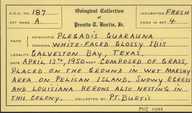 Oological Collection
of
Pruett T. Burtis, Jr.
SET NO. 187
SET MARK A
INCUBATION FRESH
NO. EGGS 4
NAME PLEGADIS GUARAUNA
WHITE-FACED GLOSSY IBIS
LOCALITY GALVESTON BAY, TEXAS.
DATE APRIL 13TH, 1950. NEST COMPOSED OF GRASS,
PLACED ON THE GROUND IN WET MARSHY
AREA ON PELICAN ISLAND. SNOWY EGRETS
AND LOUISIANA HERONS ALSO NESTING IN
THIS COLONY. COLLECTED BY